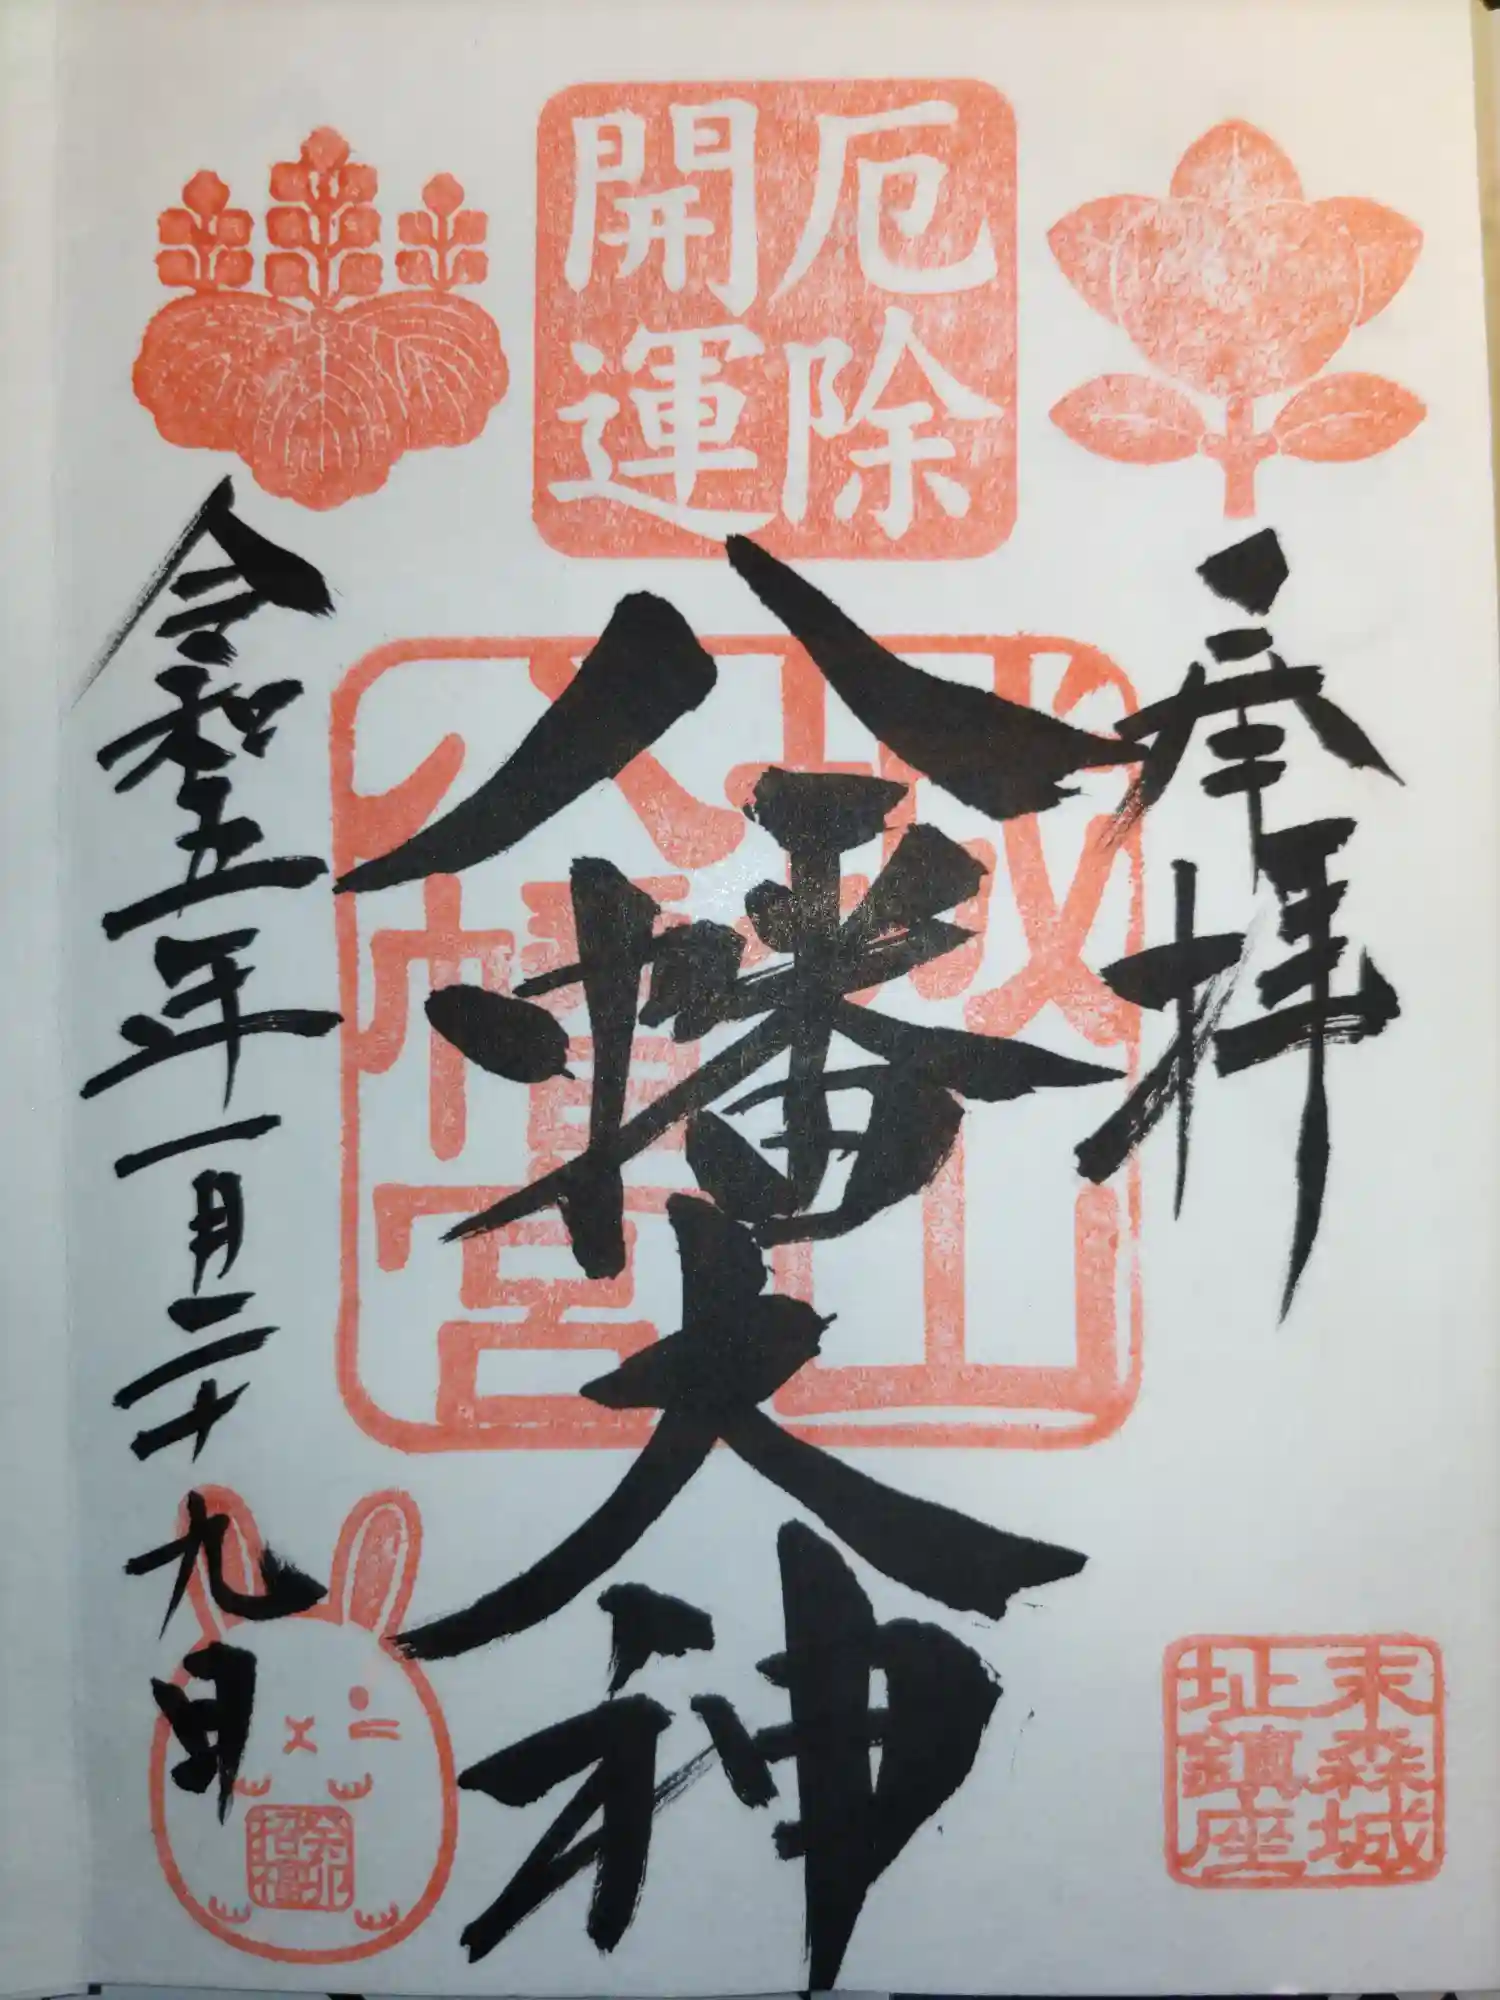 厄除
開運
奉拝
城山
八幡宮
八幡大神
末森城
址鎮座
令和五年一月二十九日
招福